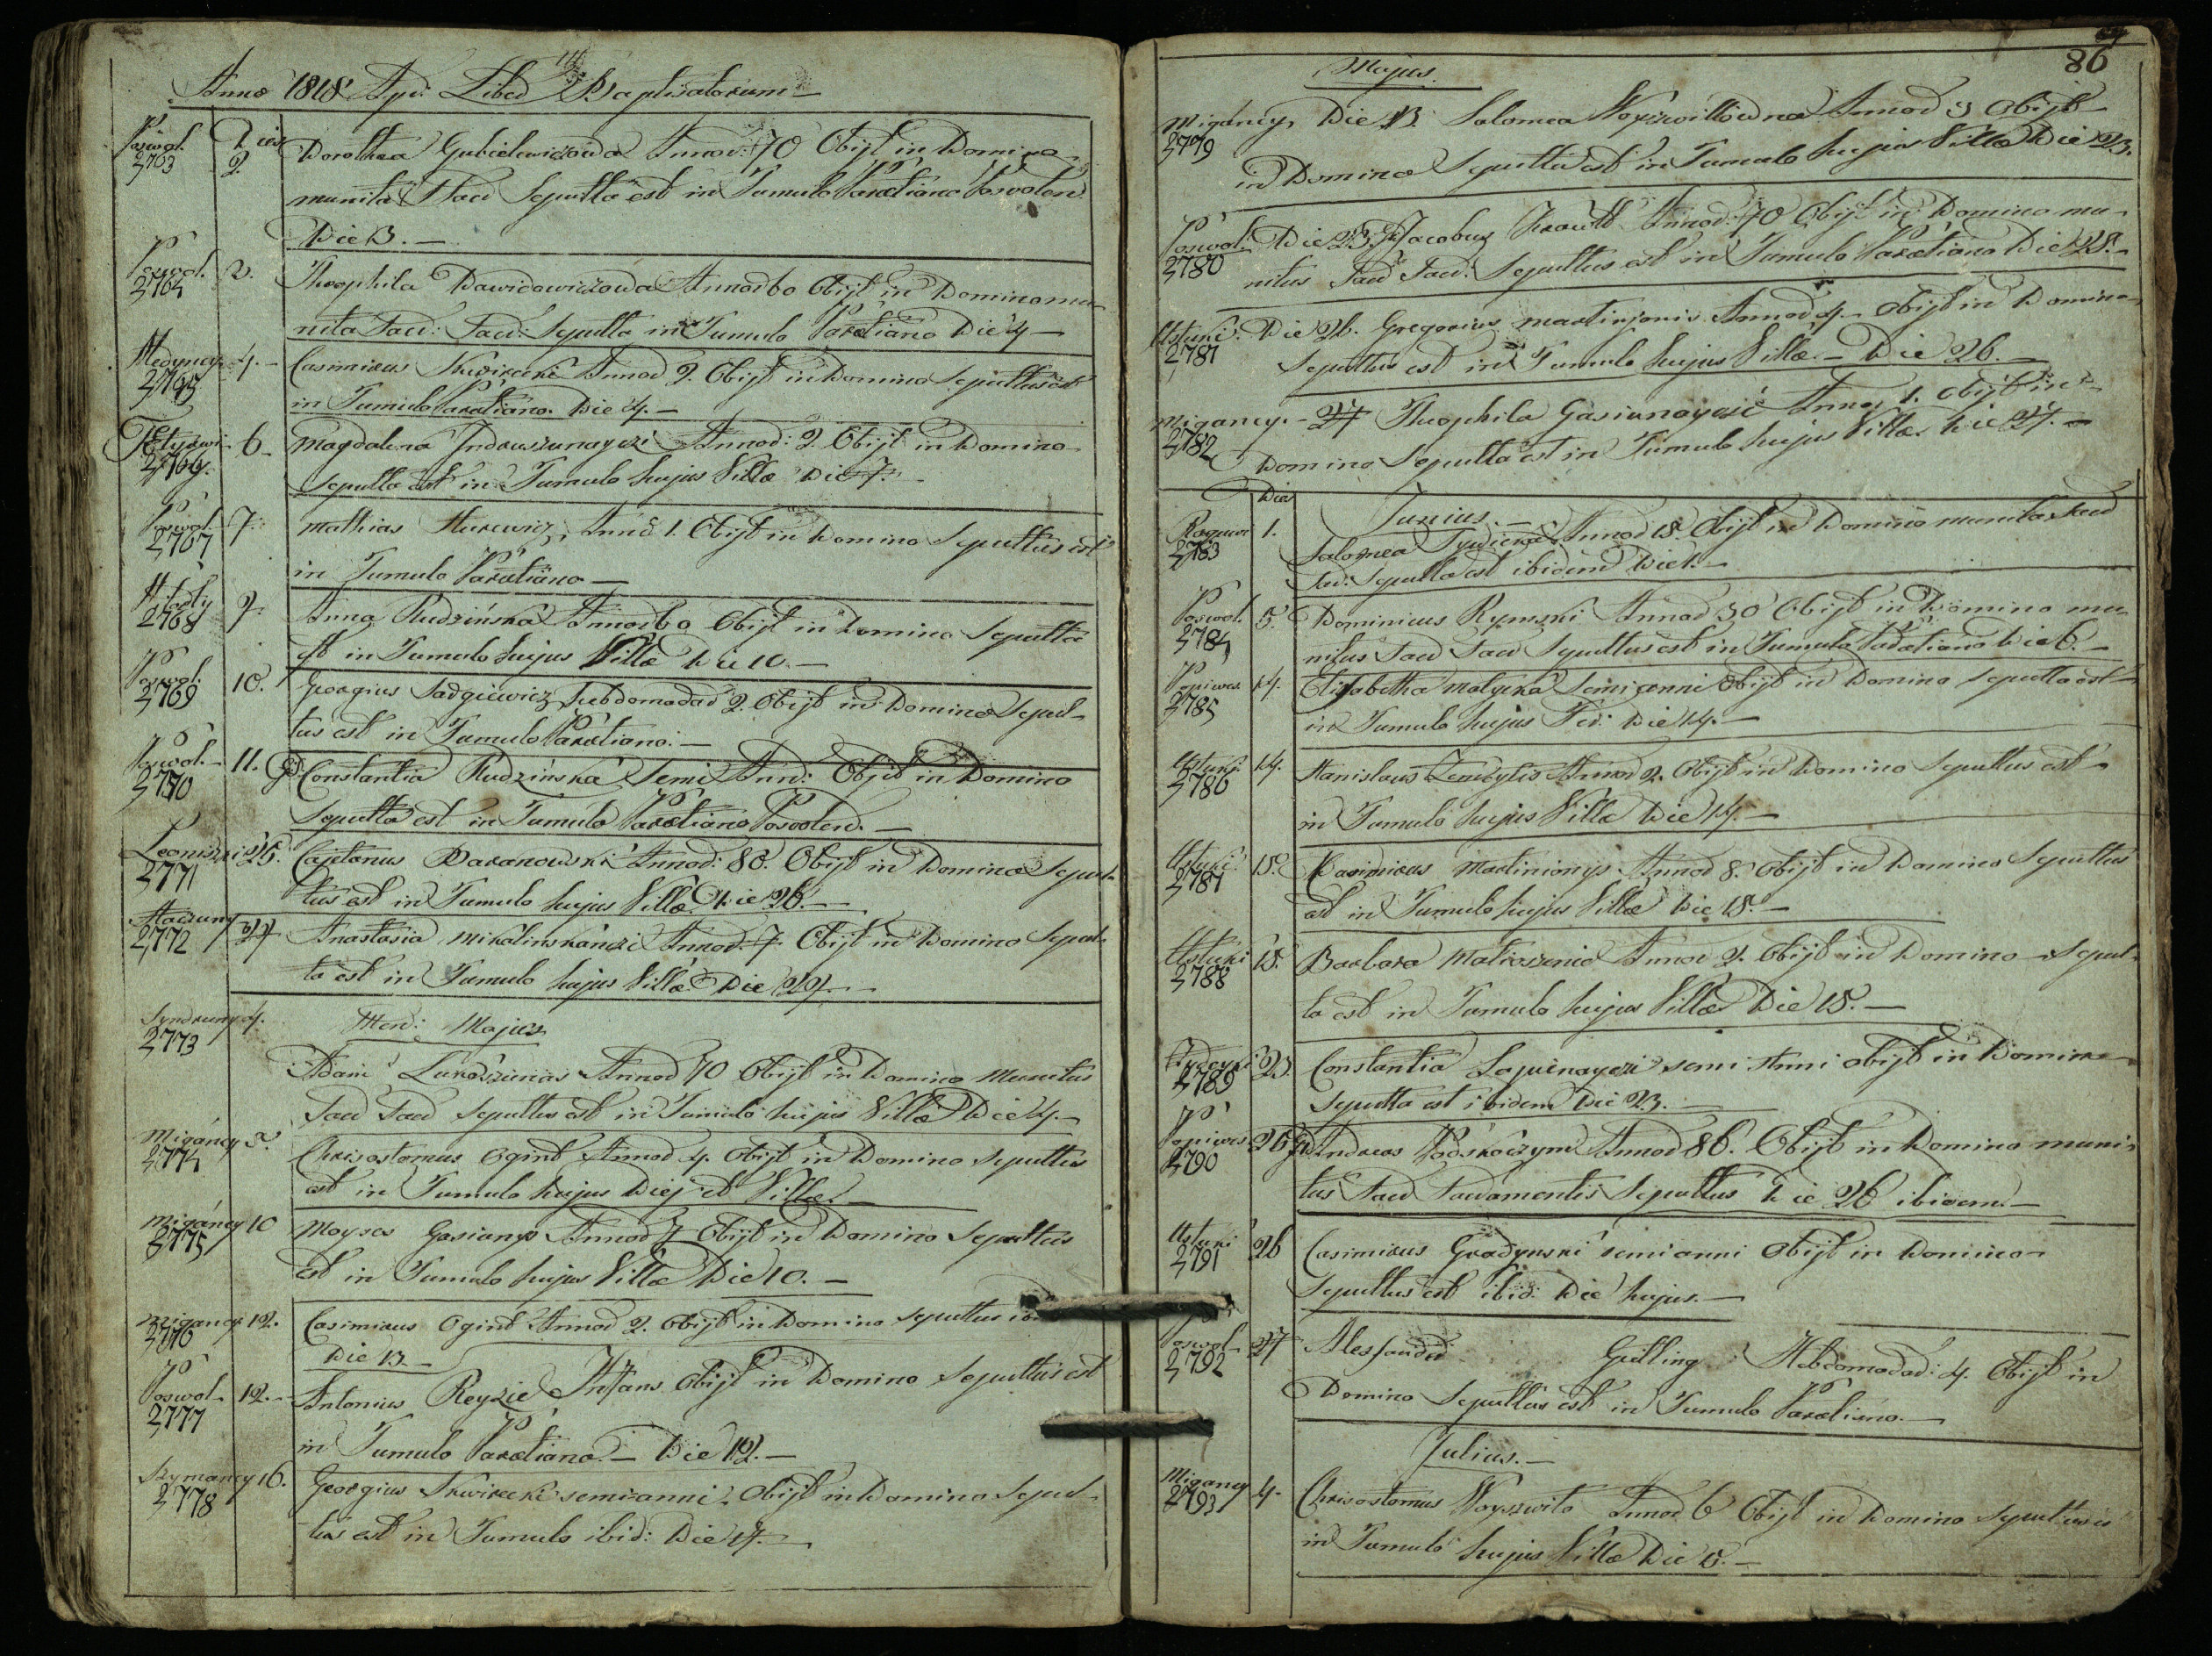 Anno 1818 Apr: Liber Baptisatorum
Poswol. Dies
2763 2. Dorothea Gubielewiczowa Annor: 70 Obijt in Domino
munita Sacr Sepulta est in Tumulo Parochiano Poswolen
Die 3.
Poswol. 2. Theophila Dawidowiczowa Annor 60 Obijt in Domino mu-
2764 nita Sacr: Sacr: Sepulta in Tumulo Paratiano Die 4
4. Casimirus Skwirecki Annor 2. Obijt in Domino Sepultus est
2765 in Tumulo Paratiano Die 4.
6 Magdalena Androszunayczi Annor: 2. Obijt in Domino
2766. Sepulta est in Tumulo hujus Villæ Die 7.
Poswol. 7. Mathias Hurewicz Anni 1. Obijt in Domino Sepultus est
2767 in Tumulo Paratiano
9. Anna Rudzińska Annor 60 Obijt in Domino Sepulta
2768 est in Tumulo hujus Villæ Die 10.
Poswol. 10. Georgius Sadgiewicz hebdomadar 2. Obijt in Domino Sepul-
2769 tus est in Tumulo Paratiano.
Poswol. 11. Constantia Rudzińska Semi Anni: Obijt in Domino
2770 Sepulta est in Tumulo Paratiano Poswolen.
Leoniszki 25. Cajetanus Baranowski Annor: 80. Obijt in Domino Sepul-
2771 tus est in Tumulo hujus Villæ Die 26.
27 Anastasia Mikalinskanczi Annor: 7. Obijt in Domino Sepul-
2772 ta est in Tumulo hujus Villæ Die 27.
4. Men: Majus
2773
Adam Lukoszunas Annor 70 Obijt in Domino Munitus
Sacr Sacr Sepultus est in Tumulo hujus Villæ Die 4.
Migańcy 5. Chrisostomus Ogint Annor 4. Obijt in Domino Sepultus
2774 est in Tumulo hujus Diej et Villæ.
Migańcy 10 Moyses Gasianys Annor 7 Obijt in Domino Sepultus
2775 est in Tumulo hujus Villæ Die 10.
Migańcy 12. Casimirus Ogint Annor 2. Obijt in Domino Sepultus
2776 Die 13.
Poswol 12. Antonius Reyzie Infans Obijt in Domino Sepultus est
2777 in Tumulo Paratiano. Die 12.
Szymańcy 16. Georgius Skwirecki semi anni Obijt in Domino Sepul-
2778 tus est in Tumulo ibid: Die 17.
86
Majus.
Migańcy Die 13. Salomea Woyszwiłłowna Annor 3 Obijt
2779 in Domino Sepulta est in Tumulo hujus Villæ Die 23.
Poswol. Die 23. Jacobus Krautt Annor: 70 Obijt in Domino mu-
2780 nitus Sacr Sacr: Sepultus est in Tumulo Paratiano Die 25.
Ustuki. Die 26. Gregorius Martinjonis Annor 4. Obijt in Domino
2781 Sepultus est in Tumulo hujus Villæ. Die 26.
Migancy. 27 Theophila Gasiunayczi Anno 1. Obijt in
2782 Domino Sepulta est in Tumulo hujus Villæ. Die 27.
Dies
Junius.
1. Salomea Annor 18. Obijt in Domino munita Sacr
2783 Sac: Sepulta est ibidem Die 1.
Poswol. 5. Dominicus Rymski Annor 50 Obijt in Domino mu-
2784 nitus Sacr Sacr Sepultus est in Tumulo Paratiano Die 6.
Popiwes 14. Elizabetha Matycka Semi anni Obijt in Domino Sepulta est
2785 in Tumulo hujus Die 14.
Ustuki 14. Stanislaus Annor 2. Obijt in Domino Sepultus est
2786 in Tumulo hujus Villæ Die 14.
Ustuki 15. Kasimirus Martinionys Annor 8. Obijt in Domino Sepultus
2787 est in Tumulo hujus Villæ Die 15.
Ustuki 15. Barbara Annor 2. Obijt in Domino Sepul-
2788 ta est in Tumulo hujus Villæ Die 15.
23. Constantia Lapienayczi semi Anni Obijt in Domino
2789 Sepulta est ibidem Die 23.
Popiwes. 26 Andreas Podskoczym Annor 86. Obijt in Domino muni-
2790 tus Sacr Sacramentis Sepultus Die 26 ibidem.
Ustuki 26 Casimirus Gradynski semi anni Obijt in Domino
2791 Sepultus est ibid: Die hujus.
Poswol 27 Alexander Gulling Hebdomadar: 4. Obijt in
2792 Domino Sepultus est in Tumulo Paratiano.
Julius.
Migancy 4. Chrisostomus Woyszwiło Annor 6 Obijt in Domino Sepultus
2793 in Tumulo hujus Villæ Die 5.